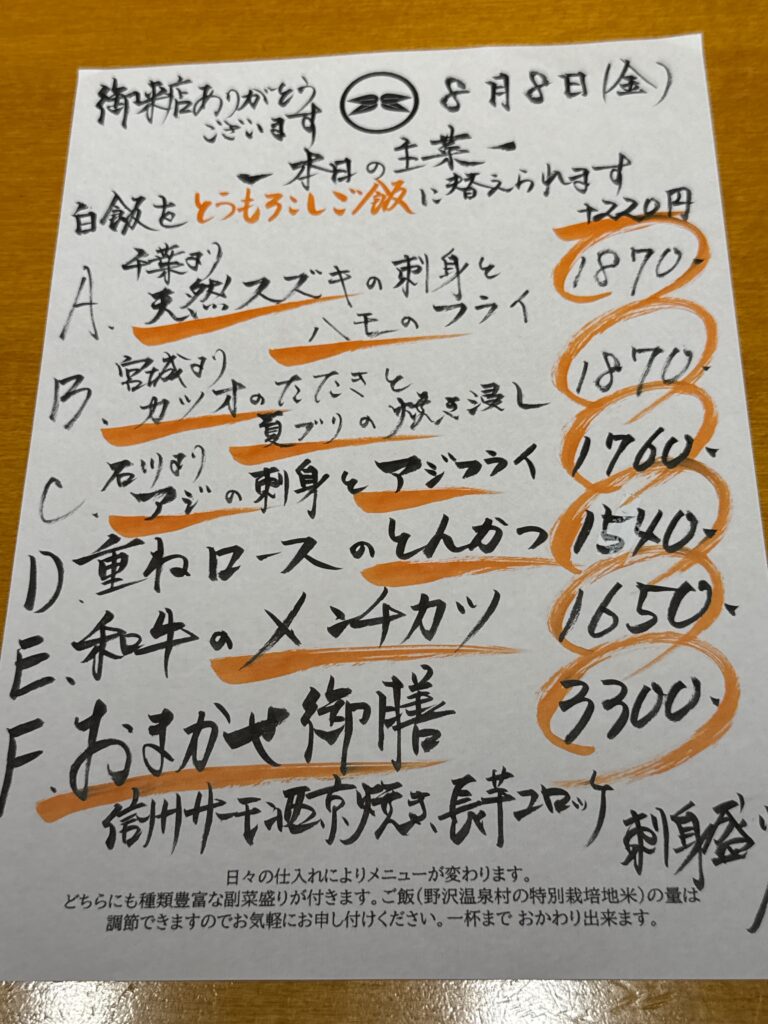 御来店ありがとう
ございます
8月8日(金)
ー本日の主菜ー
白飯をとうもろこしご飯に替えられます
+220円
A. 千葉より
天然スズキの刺身と
ハモのフライ
1870.
B. 宮城より
カツオのたたきと
夏ブリの焼き浸し
1870.
C. 石川より
アジの刺身とアジフライ
1760.
D. 重ねロースのとんかつ
1540.
E. 和牛のメンチカツ
1650.
F. おまかせ御膳
3300.
信州サーモン西京焼き、長芋コロッケ
刺身盛り
日々の仕入れによりメニューが変わります。
どちらにも種類豊富な副菜盛りが付きます。ご飯(野沢温泉村の特別栽培地米)の量は
調節できますのでお気軽にお申し付けください。一杯まで おかわり出来ます。